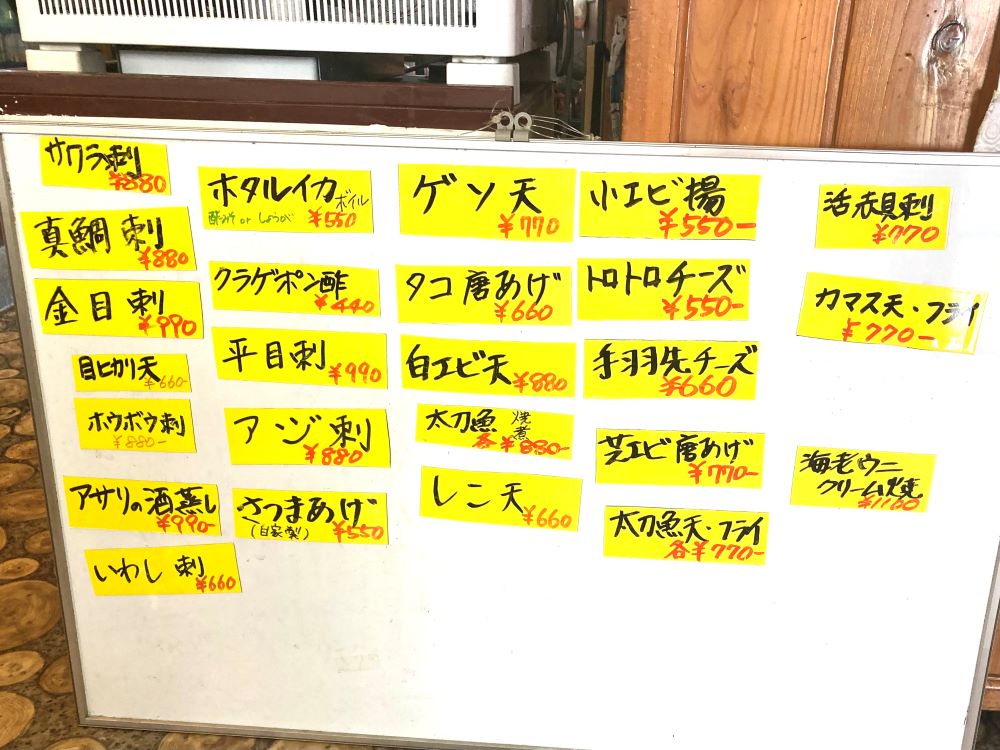 サワラ刺
¥880
真鯛刺
¥880
金目刺
¥990
目ヒカリ天
¥660-
ホウボウ刺
¥880-
アサリの酒蒸し
¥990-
いわし刺
¥660
ホタルイカ ボイル
酢みそ or しょうが ¥550
クラゲポン酢
¥440
平目刺
¥990
アジ刺
¥880
さつまあげ
(自家製) ¥550
ゲソ天
¥770
タコ唐あげ
¥660
白エビ天
¥880
太刀魚 焼 煮
各¥880-
レンコン天
¥660
小エビ揚
¥550-
トロトロチーズ
¥550-
手羽先チーズ
¥660
芝エビ唐あげ
¥770-
太刀魚天・フライ
各¥770-
活赤貝刺
¥770
カマス天・フライ
¥770-
海老ウニ
クリーム焼
¥1100